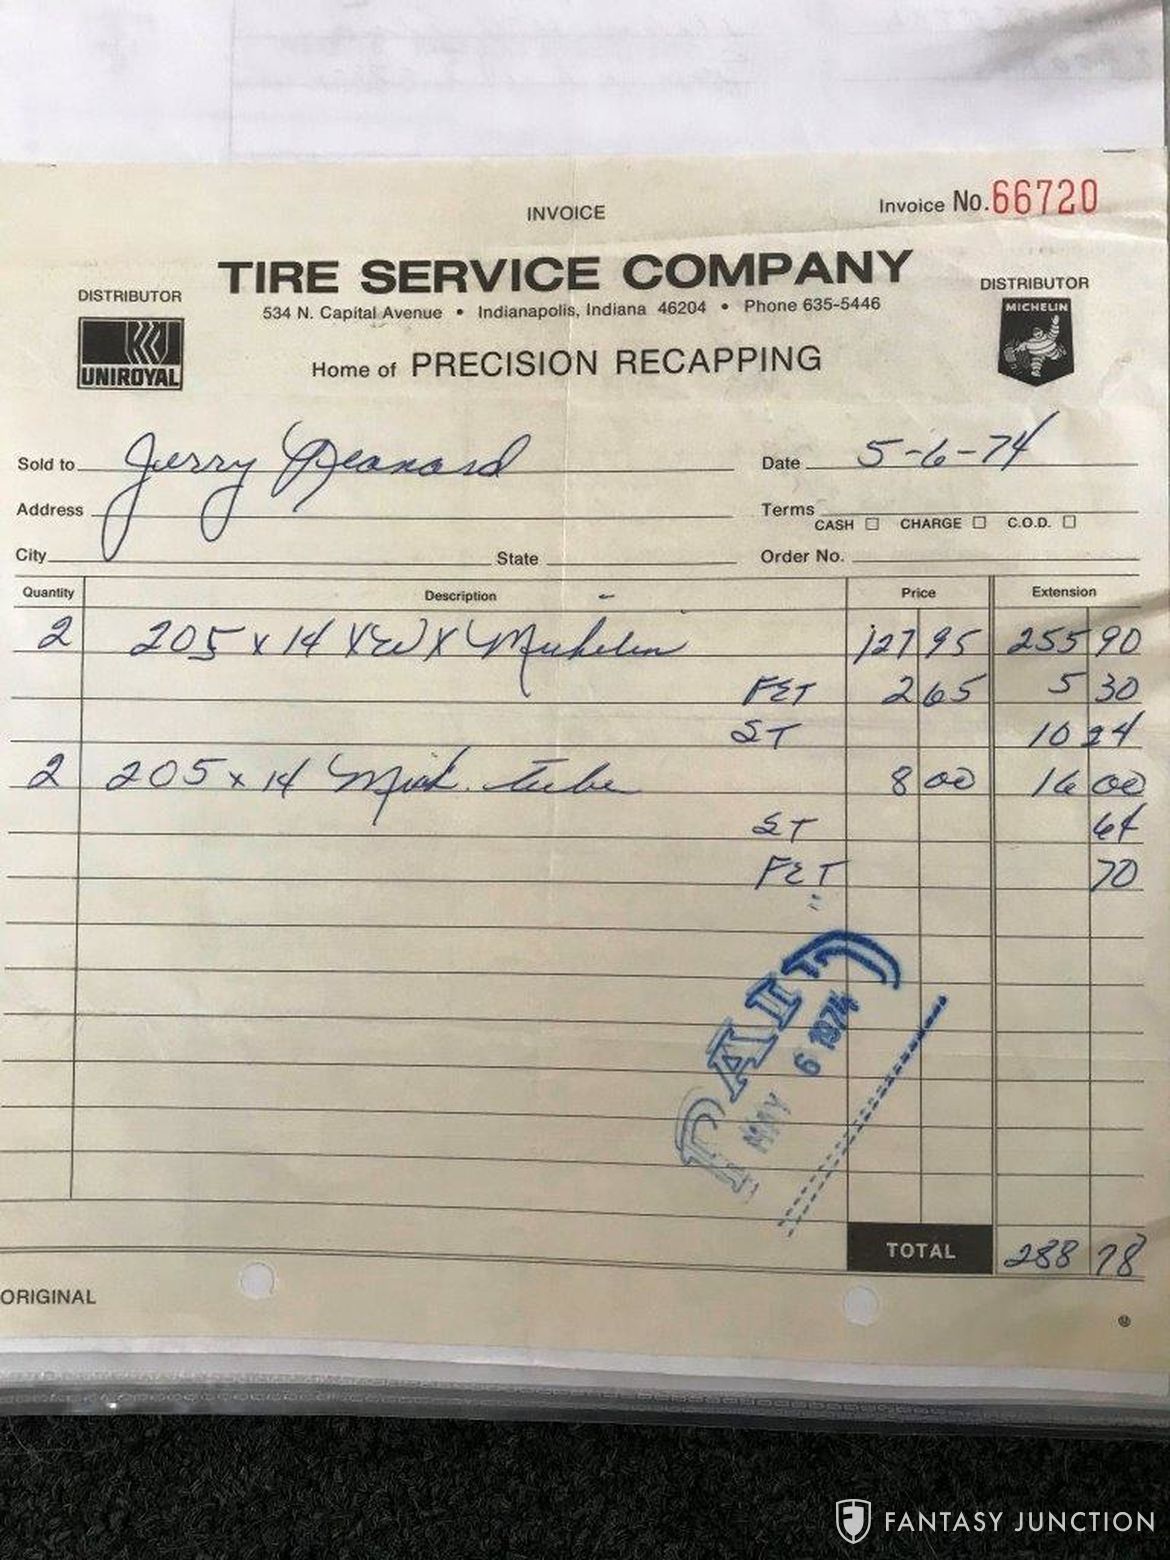 INVOICE
Invoice No. 66720
TIRE SERVICE COMPANY
DISTRIBUTOR
UNIROYAL
534 N. Capital Avenue • Indianapolis, Indiana 46204 • Phone 635-5446
DISTRIBUTOR
MICHELIN
Home of PRECISION RECAPPING
Sold to Jerry
Date 5-6-74
Address
Terms CASH CHARGE C.O.D.
City State Order No.
Quantity Description Price Extension
2 205 x 14 XWX Michelin 127 95 255 90
FET 2 65 5 30
ST 10 24
2 205 x 14 Mich. tube 8 00 16 00
ST 64
FET 70
PAID
MAY 6 1974
TOTAL 288 78
ORIGINAL
FANTASY JUNCTION